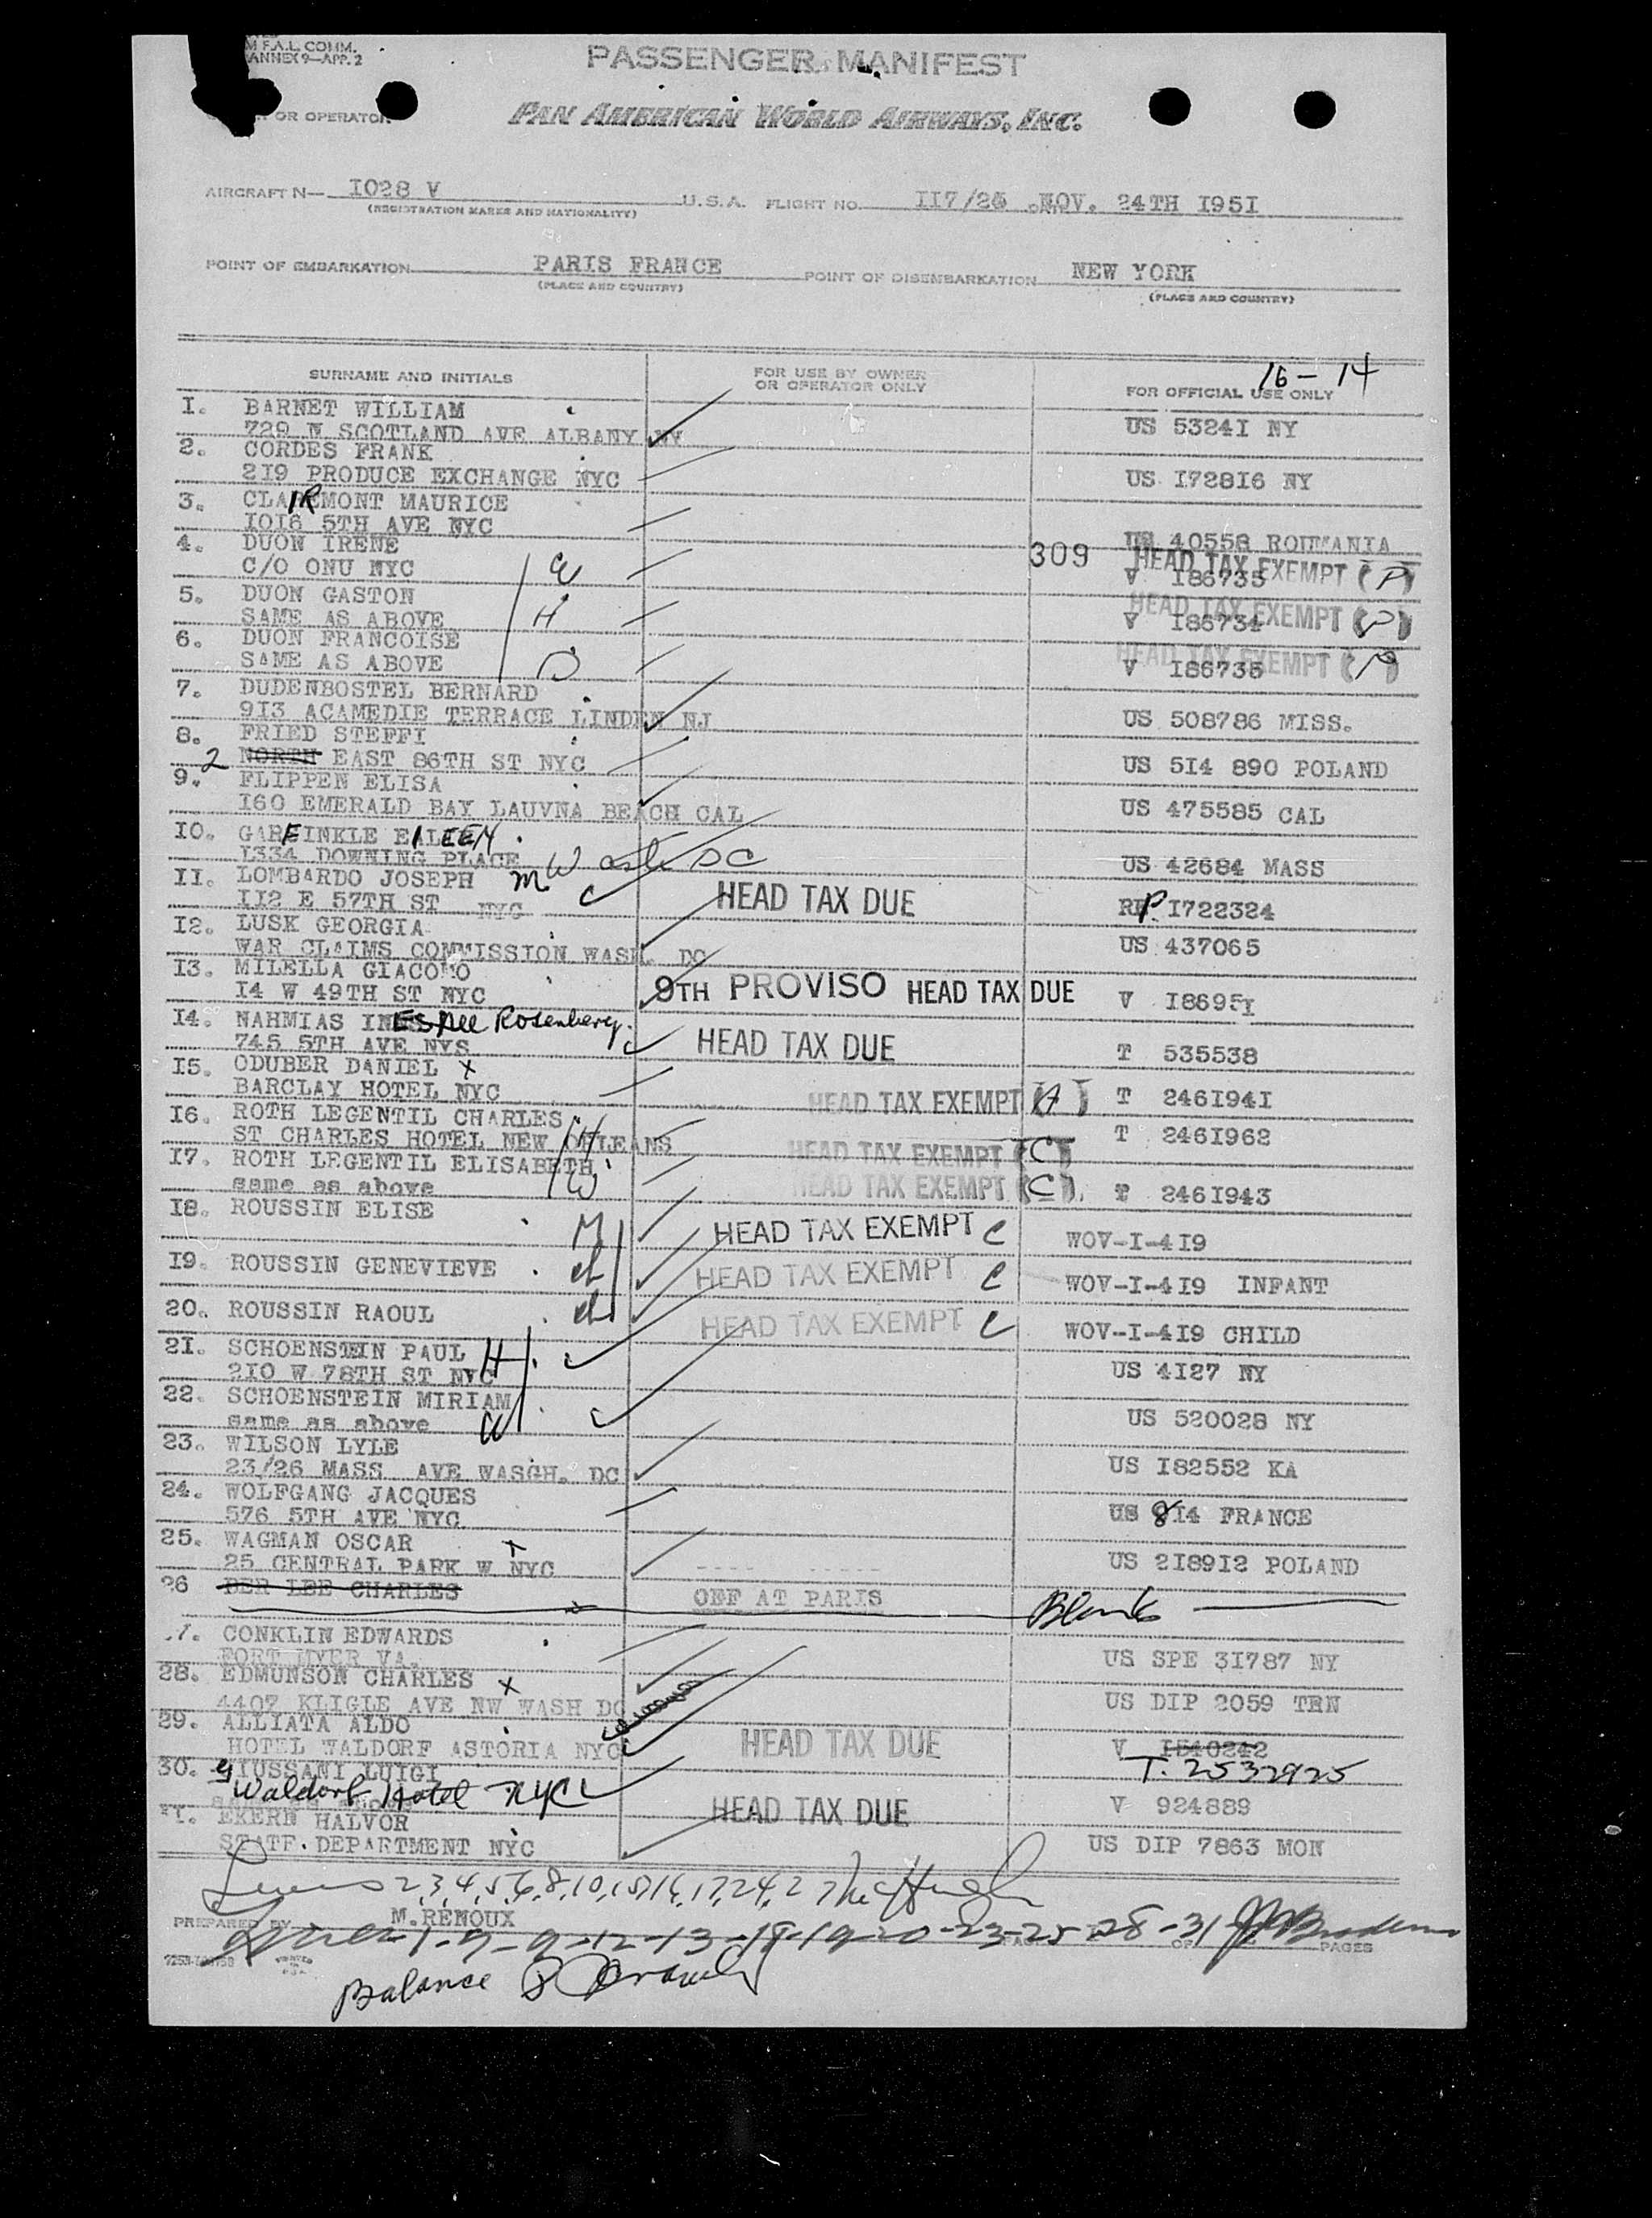 M F.A.L. COMM.
ANNEX 9—APP. 2
PASSENGER MANIFEST
OR OPERATOR
PAN AMERICAN WORLD AIRWAYS, INC.
AIRCRAFT N— I028 V U.S.A. FLIGHT NO. II7/26 NOV. 24TH I95I
(REGISTRATION MARKS AND NATIONALITY)
POINT OF EMBARKATION PARIS FRANCE POINT OF DISEMBARKATION NEW YORK
(PLACE AND COUNTRY) (PLACE AND COUNTRY)
16 – 14
SURNAME AND INITIALS FOR USE BY OWNER OR OPERATOR ONLY FOR OFFICIAL USE ONLY
I. BARNET WILLIAM
729 N SCOTLAND AVE ALBANY NY US 5324I NY
2. CORDES FRANK
2I9 PRODUCE EXCHANGE NYC US I728I6 NY
3. CLAIRMONT MAURICE
I0I6 5TH AVE NYC US 40558 ROUMANIA
4. DUON IRENE 309 HEAD TAX EXEMPT (P)
C/O ONU NYC V I86735
5. DUON GASTON H HEAD TAX EXEMPT (P)
SAME AS ABOVE V I86734
6. DUON FRANCOISE D HEAD TAX EXEMPT (P)
SAME AS ABOVE V I86735
7. DUDENBOSTEL BERNARD
9I3 ACAMEDIE TERRACE LINDEN NJ US 508786 MISS.
8. FRIED STEFFI
2 NORTH EAST 86TH ST NYC US 5I4 890 POLAND
9. FLIPPEN ELISA
I60 EMERALD BAY LAUVNA BEACH CAL US 475585 CAL
I0. GARFINKLE EILEEN
I334 DOWNING PLACE Wash DC US 42684 MASS
II. LOMBARDO JOSEPH M
II2 E 57TH ST NYC HEAD TAX DUE RP. I722324
I2. LUSK GEORGIA
WAR CLAIMS COMMISSION WASH. DC US 437065
I3. MILELLA GIACOMO
I4 W 49TH ST NYC 9TH PROVISO HEAD TAX DUE V I8695I
I4. NAHMIAS Rosenberg.
745 5TH AVE NYS HEAD TAX DUE T 535538
I5. ODUBER DANIEL X
BARCLAY HOTEL NYC HEAD TAX EXEMPT (A) T 246I94I
I6. ROTH LEGENTIL CHARLES H
ST CHARLES HOTEL NEW ORLEANS HEAD TAX EXEMPT (C) T 246I962
I7. ROTH LEGENTIL ELISABETH W
same as above HEAD TAX EXEMPT (C) T 246I943
I8. ROUSSIN ELISE M HEAD TAX EXEMPT C WOV-I-4I9
I9. ROUSSIN GENEVIEVE ch HEAD TAX EXEMPT C WOV-I-4I9 INFANT
20. ROUSSIN RAOUL ch HEAD TAX EXEMPT C WOV-I-4I9 CHILD
2I. SCHOENSTEIN PAUL H
2I0 W 78TH ST NYC US 4I27 NY
22. SCHOENSTEIN MIRIAM W
same as above US 520028 NY
23. WILSON LYLE
23/26 MASS AVE WASGH. DC US I82552 KA
24. WOLFGANG JACQUES
576 5TH AVE NYC US 8I4 FRANCE
25. WAGMAN OSCAR X
25 CENTRAL PARK W NYC US 2I89I2 POLAND
26 DER LEE CHARLES OFF AT PARIS Blank
7. CONKLIN EDWARDS
FORT MYER VA. US SPE 3I787 NY
28. EDMUNSON CHARLES X
4407 KLIGLE AVE NW WASH DC US DIP 2059 TEN
29. ALLIATA ALDO
HOTEL WALDORF ASTORIA NYC HEAD TAX DUE V I540242
T. 2532925
30. GIUSSANI LUIGI
Waldorf Hotel NYC HEAD TAX DUE V 924889
I. EKERN HALVOR
STATE. DEPARTMENT NYC US DIP 7863 MON
2,3,4,5,6,8,10,15,16,17,24,2
PREPARED BY M. RENOUX
1-7-9-12-13-18-19-20-23-25-28-31
OF PAGES
Balance